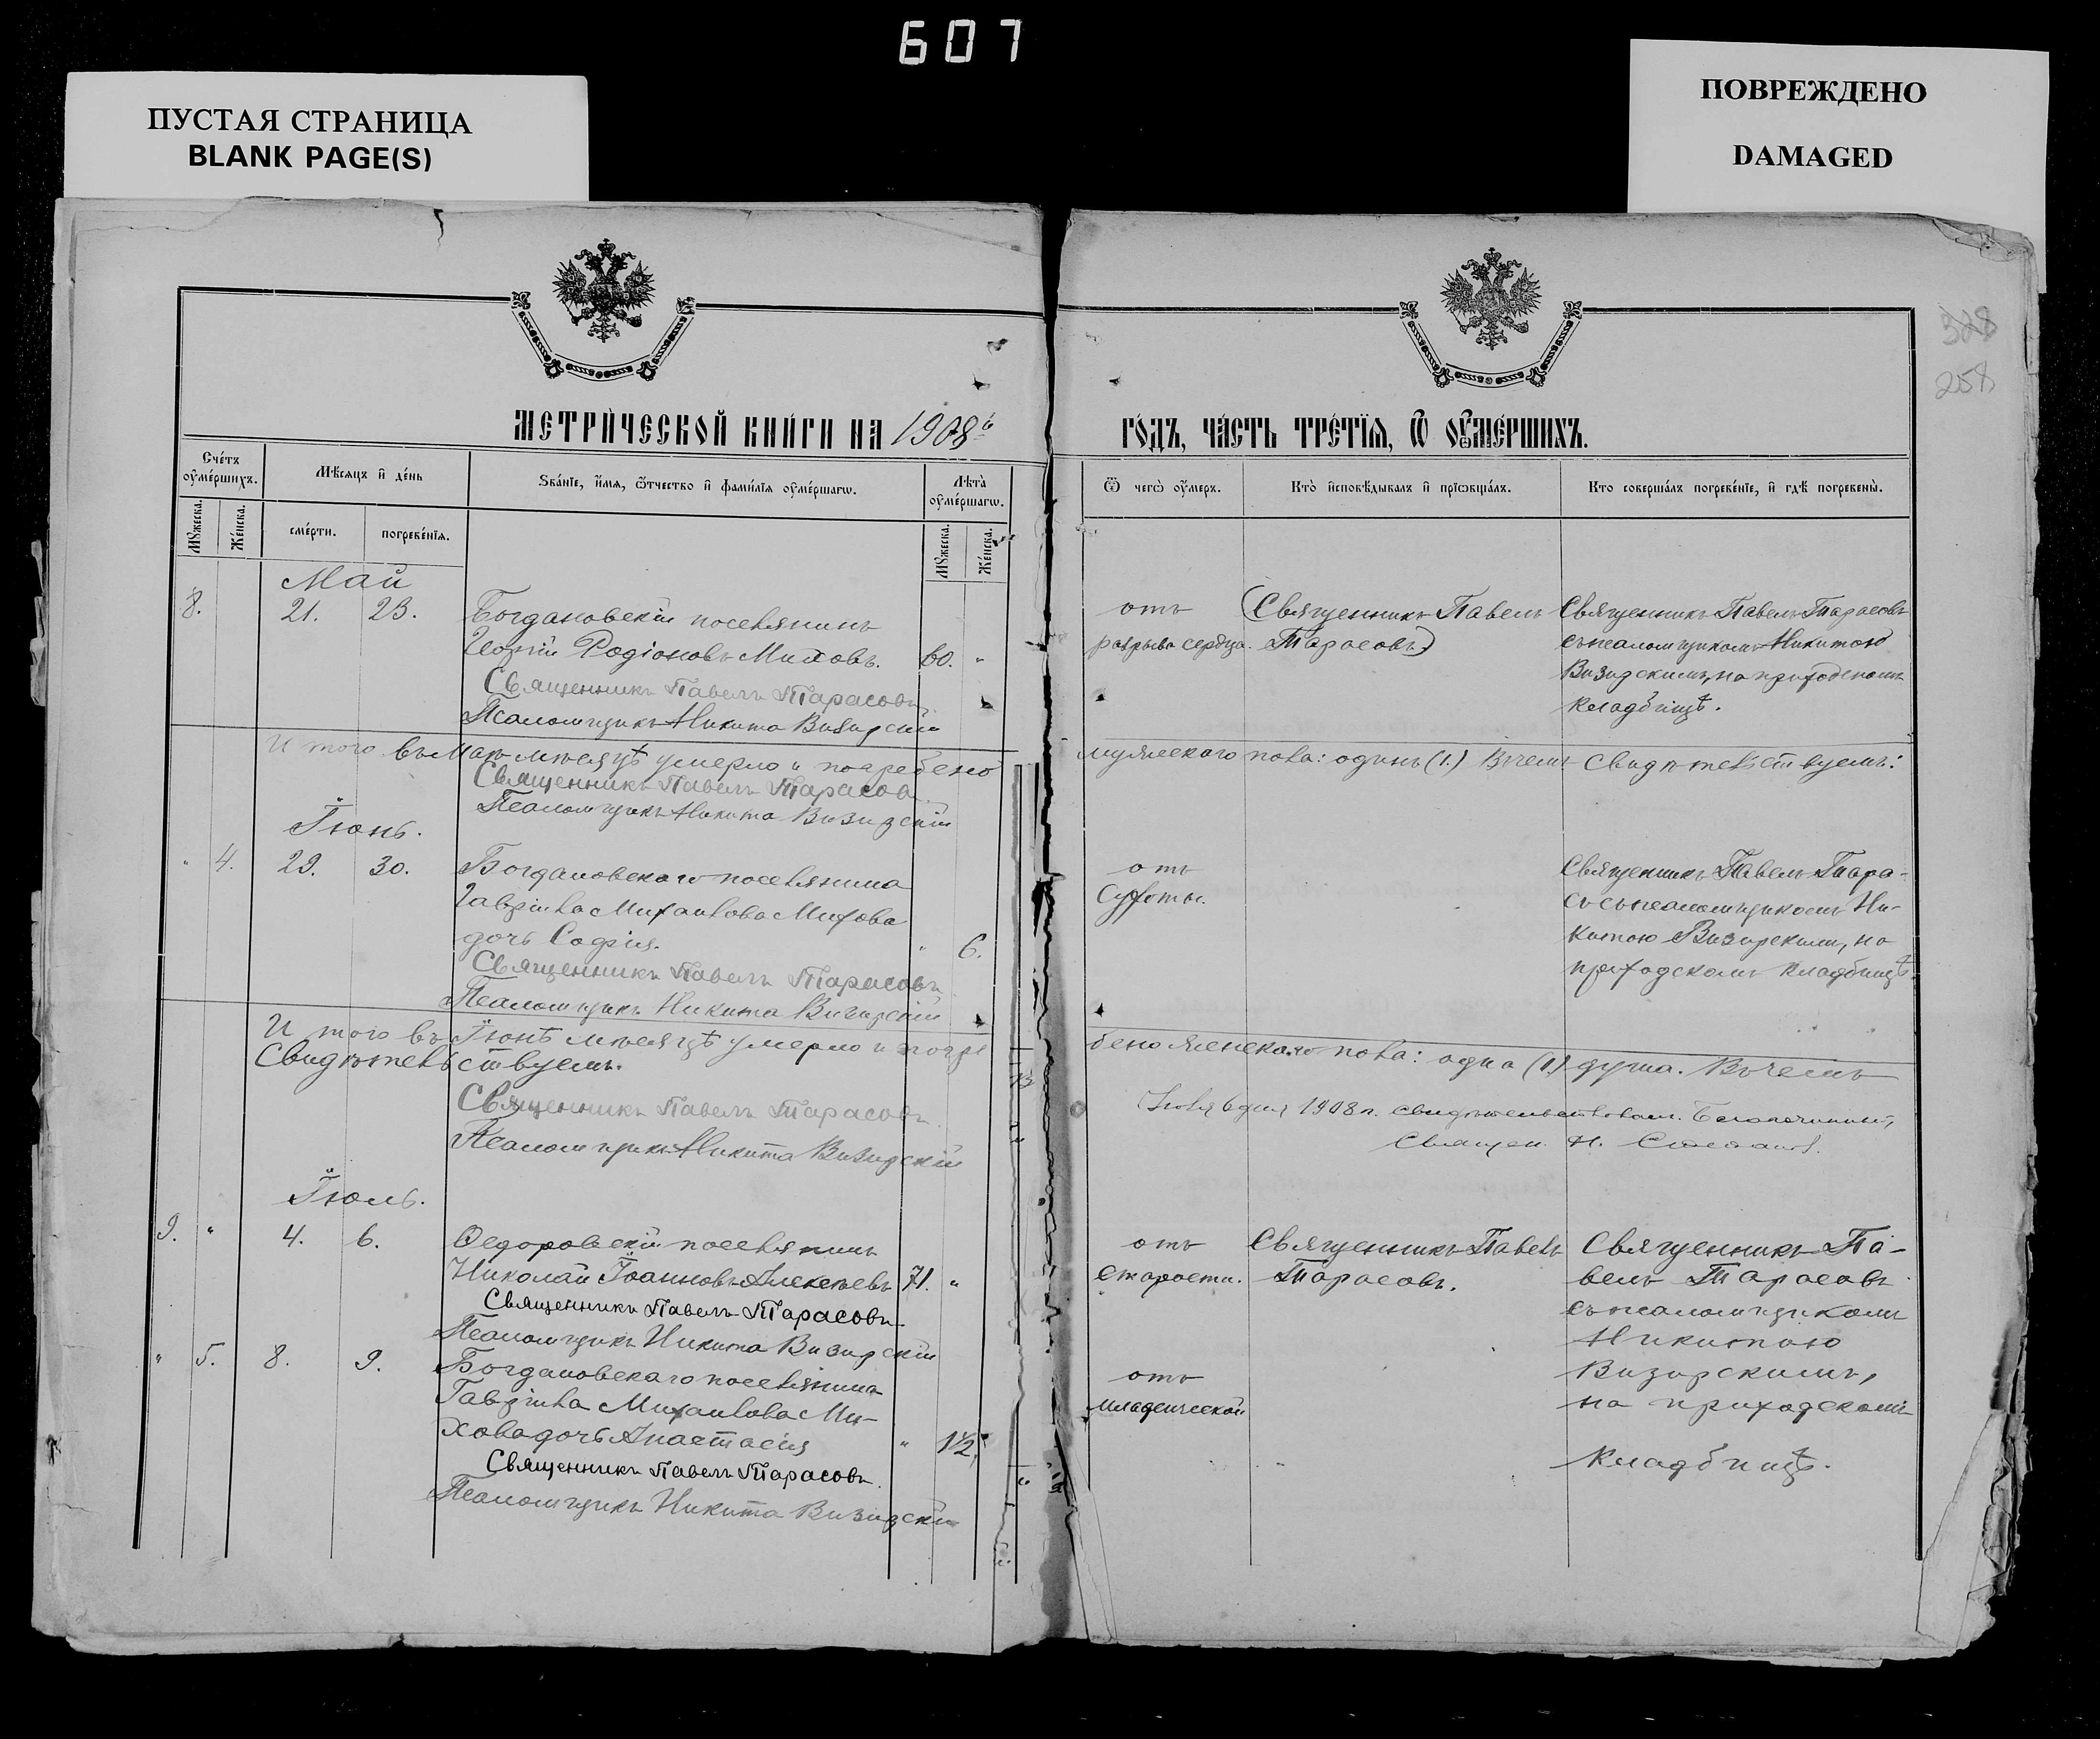 607
ПУСТАЯ СТРАНИЦА
BLANK PAGE(S)
ПОВРЕЖДЕНО
DAMAGED
328
258
МЕТРИ́ЧЕСКОЙ КНИ́ГИ НА 1908й
ГО́ДЪ, ЧА́СТЬ ТРЕ́ТЇѦ, Ѿ ОУ҆МЕ́РШИХЪ.
Сче́тъ оу҆ме́ршихъ.
Мѣ́сяцъ и҆ де́нь
Ѕва́нїе, и҆́мѧ, ѻ҆́тчество и҆ фами́лїѧ оу҆ме́ршагѡ.
Лѣ́та̀ оу҆ме́ршагѡ.
Ѿ чегѡ̀ оу҆́меръ.
Кто̀ и҆сповѣ́дывалъ и҆ прїѡбща́лъ.
Кто соверша́лъ погребе́нїе, и҆ гдѣ̀ погребены̀.
Мꙋ́жеска.
Же́нска.
сме́рти.
погребе́нїѧ.
Мꙋ́жеска.
Же́нска.
Май
8. 21. 23. Богдановскій поселянинъ
Родіоновъ Миховъ. 60. "
Священникъ Павелъ Тарасовъ.
Псаломщикъ Никита Визирскій
отъ
разрыва сердца.
(Священникъ Павелъ
Тарасовъ)
Священникъ Павелъ Тарасовъ
съ псаломщикомъ Никитою
Визирскимъ, на приходскомъ
кладбищѣ.
И того въ Маѣ мѣсяцѣ умерло и погребено
мужескаго пола: одинъ (1.) Въ чемъ свидѣтельствуемъ:
Священникъ Павелъ Тарасовъ
Псаломщикъ Никита Визирскій
Іюнь.
" 4. 29. 30. Богдановскаго поселянина
Гавріила Михаилова Михова
дочь Софія. " 6.
Священникъ Павелъ Тарасовъ
Псаломщикъ Никита Визирскій
отъ
Сухоты.
Священникъ Павелъ Тара-
съ псаломщикомъ Ни-
китою Визирскимъ, на
приходскомъ кладбищѣ.
И того въ Іюнѣ мѣсяцѣ умерло и погре
бено женскаго пола: одна (1.) душа. Въ чемъ
Свидѣтельствуемъ.
Священникъ Павелъ Тарасовъ.
Псаломщикъ Никита Визирскій
Іюля 6 дня 1908 г. свидѣтельствовалъ. Благочинный,
Священ. Н.
Іюль.
9. " 4. 6. Ѳедоровскій поселянинъ
Николай Іоанновъ Алексѣевъ 71. "
Священникъ Павелъ Тарасовъ.
Псаломщикъ Никита Визирскій
отъ
старости.
Священникъ Павелъ
Тарасовъ.
Священникъ Па-
велъ Тарасовъ
съ псаломщикомъ
Никитою
Визирскимъ,
на приходскомъ
кладбищѣ.
" 5. 8. 9. Богдановскаго поселянина
Гавріила Михаилова Ми-
хова дочь Анастасія " 1½.
Священникъ Павелъ Тарасовъ.
Псаломщикъ Никита Визирскій
отъ
младенческой